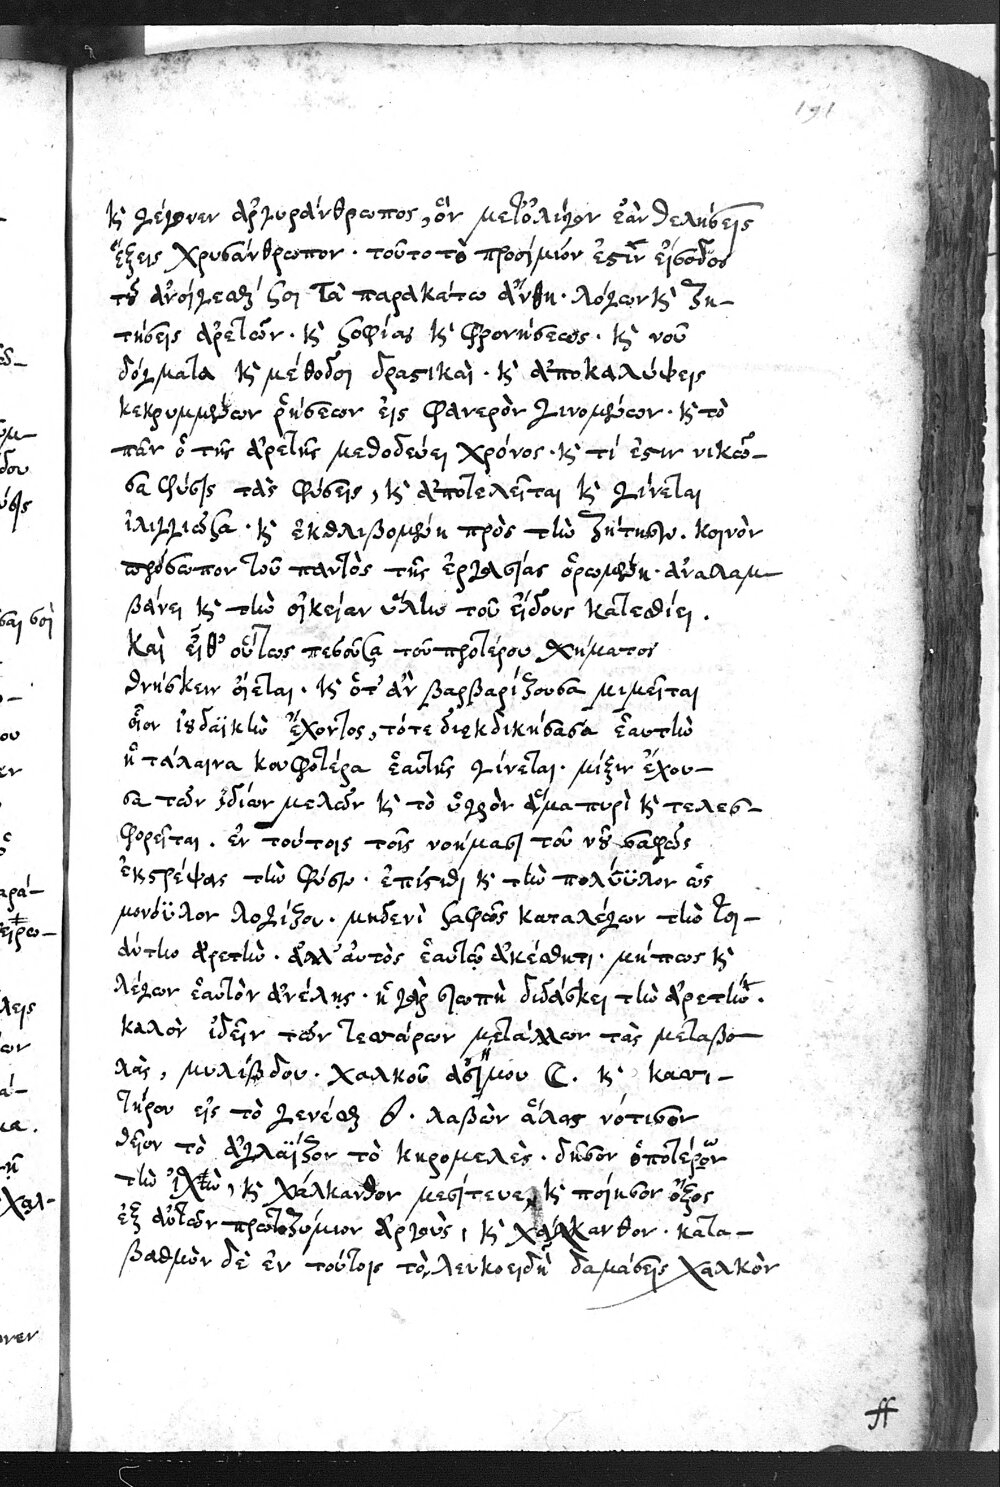 191
κ̀ γέγονεν ἀργυράνθρωπος, ὃν μετ' ὀλίγον ἐὰν θελήσεις
ἕξεις χρυσάνθρωπον · τοῦτο τὸ προοίμιόν ἐστιν εἴσοδος
τοῦ ἀνοίγεσθαί σοι τὰ παρακάτω ἄνθη · λόγων κ̀ ζη-
τήσεις ἀρετῶν · κ̀ σοφίας κ̀ φρονήσεως · κ̀ νοῦ
δόγματα κ̀ μέθοδοι δραστικαὶ · κ̀ ἀποκαλύψεις
κεκρυμμένων ῥήσεων εἰς φανερὸν γινομένων · κ̀ τὸ
πᾶν ὁ τῆς ἀρετῆς μεθοδεύει χρόνος · κ̀ τί ἐστιν νικῶ-
σα φύσις τὰς φύσεις, κ̀ ἀποτελεῖται κ̀ γίνεται
ἰλιγγιῶσα · κ̀ ἐκθλιβομένη πρὸς τὴν ζήτησιν. κοινὸν
πρόσωπον τοῦ παντὸς τῆς ἐργασίας ὁρωμένη · ἀναλαμ-
βάνει κ̀ τὴν οἰκείαν ὕλην τοῦ εἴδους κατεσθίει.
Καὶ εἶθ' οὕτως πεσοῦσα τοῦ προτέρου σχήματος
θνήσκειν οἴεται · κ̀ ὅτ' ἂν βαρβαρίζουσα μιμεῖται
οἷον ἰουδαϊκὴν ἔχοντος, τότε διεκδικήσασα ἑαυτὴν
ἡ τάλαινα κουφοτέρα ἑαυτῆς γίνεται · μίξιν ἔχου-
σα τῶν ἰδίων μελῶν κ̀ τὸ ὑγρὸν ἅμα πυρὶ κ̀ τελεσ-
φορεῖται. ἐν τούτοις τοῖς νοήμασι τοῦ νοῦ σαφῶς
ἐκστρέψας τὴν φύσιν · ἐπίστηθι κ̀ τὴν πολύϋλον ὡς
μονόϋλον λογίζου · μηδενὶ σαφῶς καταλέγων τὴν τοι-
αύτην ἀρετὴν · ἀλλ' αὐτὸς ἑαυτῷ ἀρκέσθητι · μήπως κ̀
λέγων ἑαυτὸν ἀνέλῃς · ἡ γὰρ σιωπὴ διδάσκει τὴν ἀρετήν ·
καλὸν ἰδεῖν τῶν τεσσάρων μετάλλων τὰς μεταβο-
λὰς, μυλίβδου · χαλκοῦ ἀσήμου ☾. κ̀ κασσι-
τήρου εἰς τὸ γενέσθαι · λαβὼν ἅλας νότισον
θεῖον τὸ ἀγλαΐζον τὸ κηρομελὲς · δῆσον ὁποτέρων
τὴν ἰσχὺν, κ̀ χάλκανθον μεσίτευε, κ̀ ποίησον ὄξος
ἐξ αὐτῶν πρωτοζύμιον ἀργοὺς, κ̀ χάλκανθον · κατα-
βαθμὸν δὲ ἐν τούτοις τὸ, λευκοειδῆ δαμάσεις χαλκὸν
ff